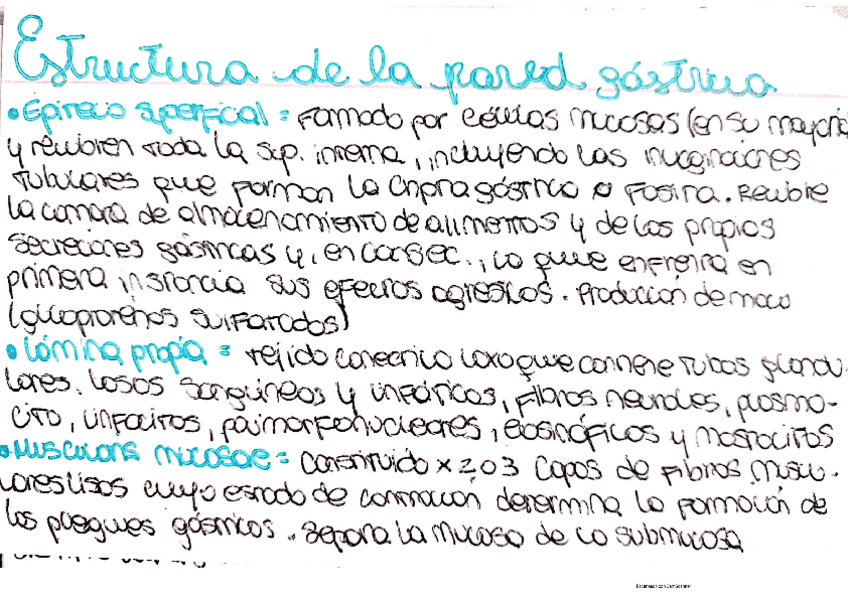 Estructura de la pared gástrica
• Epitelio superficial = Formado por células mucosas (en su mayoría)
y recubren toda la sup. interna, incluyendo las invaginaciones
tubulares que forman la cripta gástrica o fosita. Recubre
la cámara de almacenamiento de alimentos y de los propios
secreciones gástricas y, en consec., lo que enfrenta en
primera instancia sus efectos agresivos. Producción de moco
(glucoproteínas sulfatadas)
• Lámina propia = tejido conectivo laxo que contiene tubos glandu-
lares. Vasos sanguíneos y linfáticos, fibras neurales, plasmo-
cito, linfocitos, polimorfonucleares, eosinófilos y mastocitos
• Muscularis mucosae = Constituido x 2 o 3 capas de fibras muscu-
lares lisas cuyo estado de contracción determina la formación de
los pliegues gástricos. Separa la mucosa de la submucosa
Escaneado con CamScanner